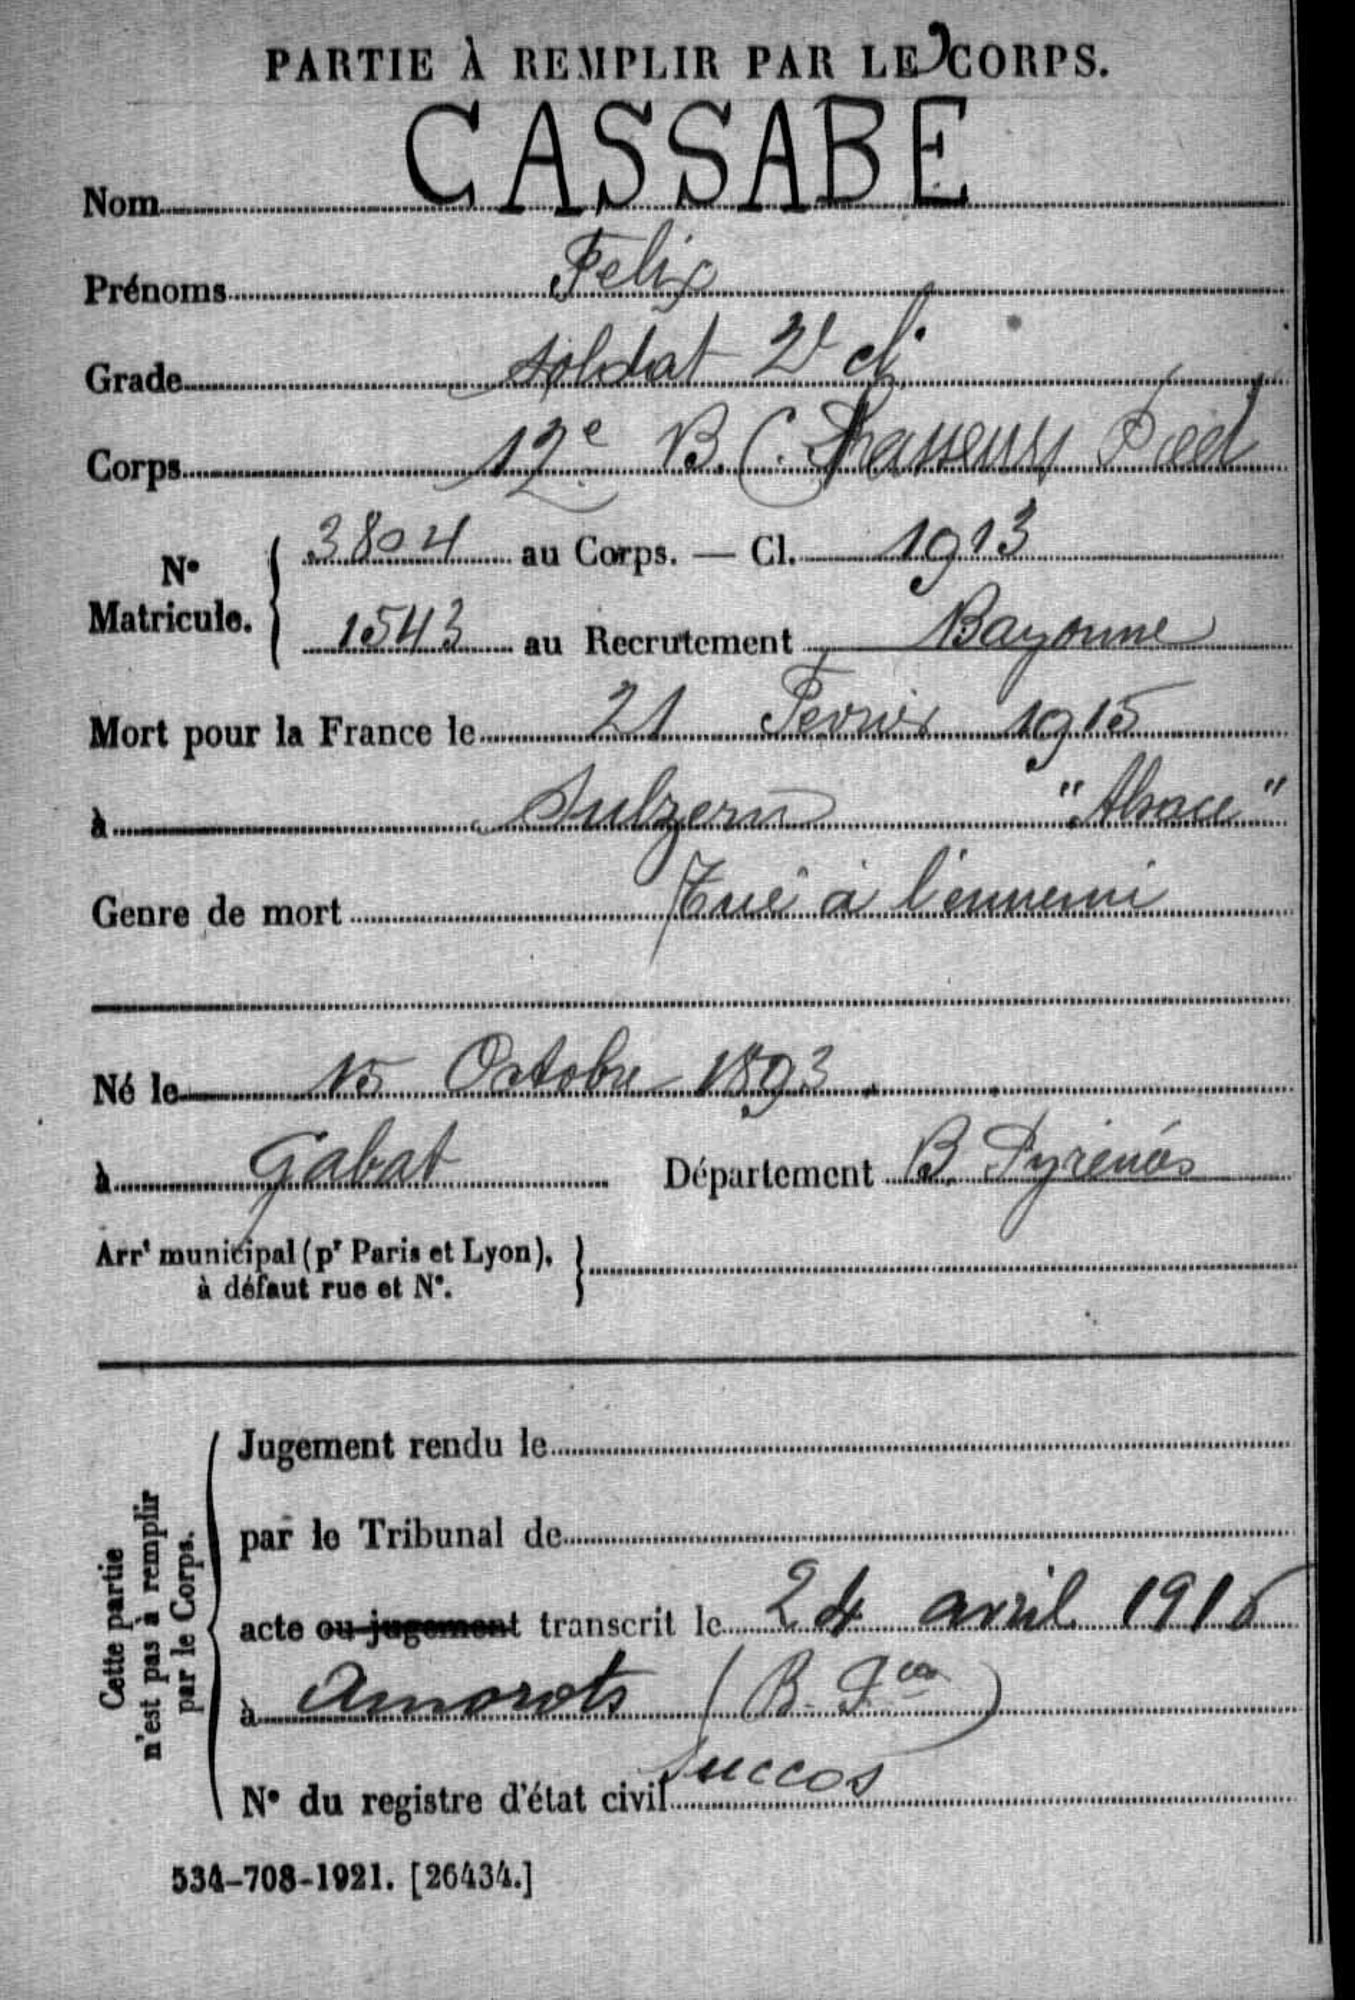 PARTIE À REMPLIR PAR LE CORPS.
Nom CASSABE
Prénoms Felix
Grade soldat 2e cl.
Corps 12e B. C. Chasseurs Pied
N° Matricule. 3804 au Corps. — Cl. 1913
1543 au Recrutement Bayonne
Mort pour la France le 21 Fevrier 1915
à Sulzern "Alsace"
Genre de mort Tué à l'ennemi
Né le 15 Octobre 1893
à Gabat Département B. Pyrénées
Arrt municipal (pr Paris et Lyon),
à défaut rue et N°.
Cette partie
n'est pas à remplir
par le Corps.
Jugement rendu le
par le Tribunal de
acte ou jugement transcrit le 24 avril 1916
à Amorots (B. Pees)
Succos
N° du registre d'état civil
534-708-1921. [26434.]